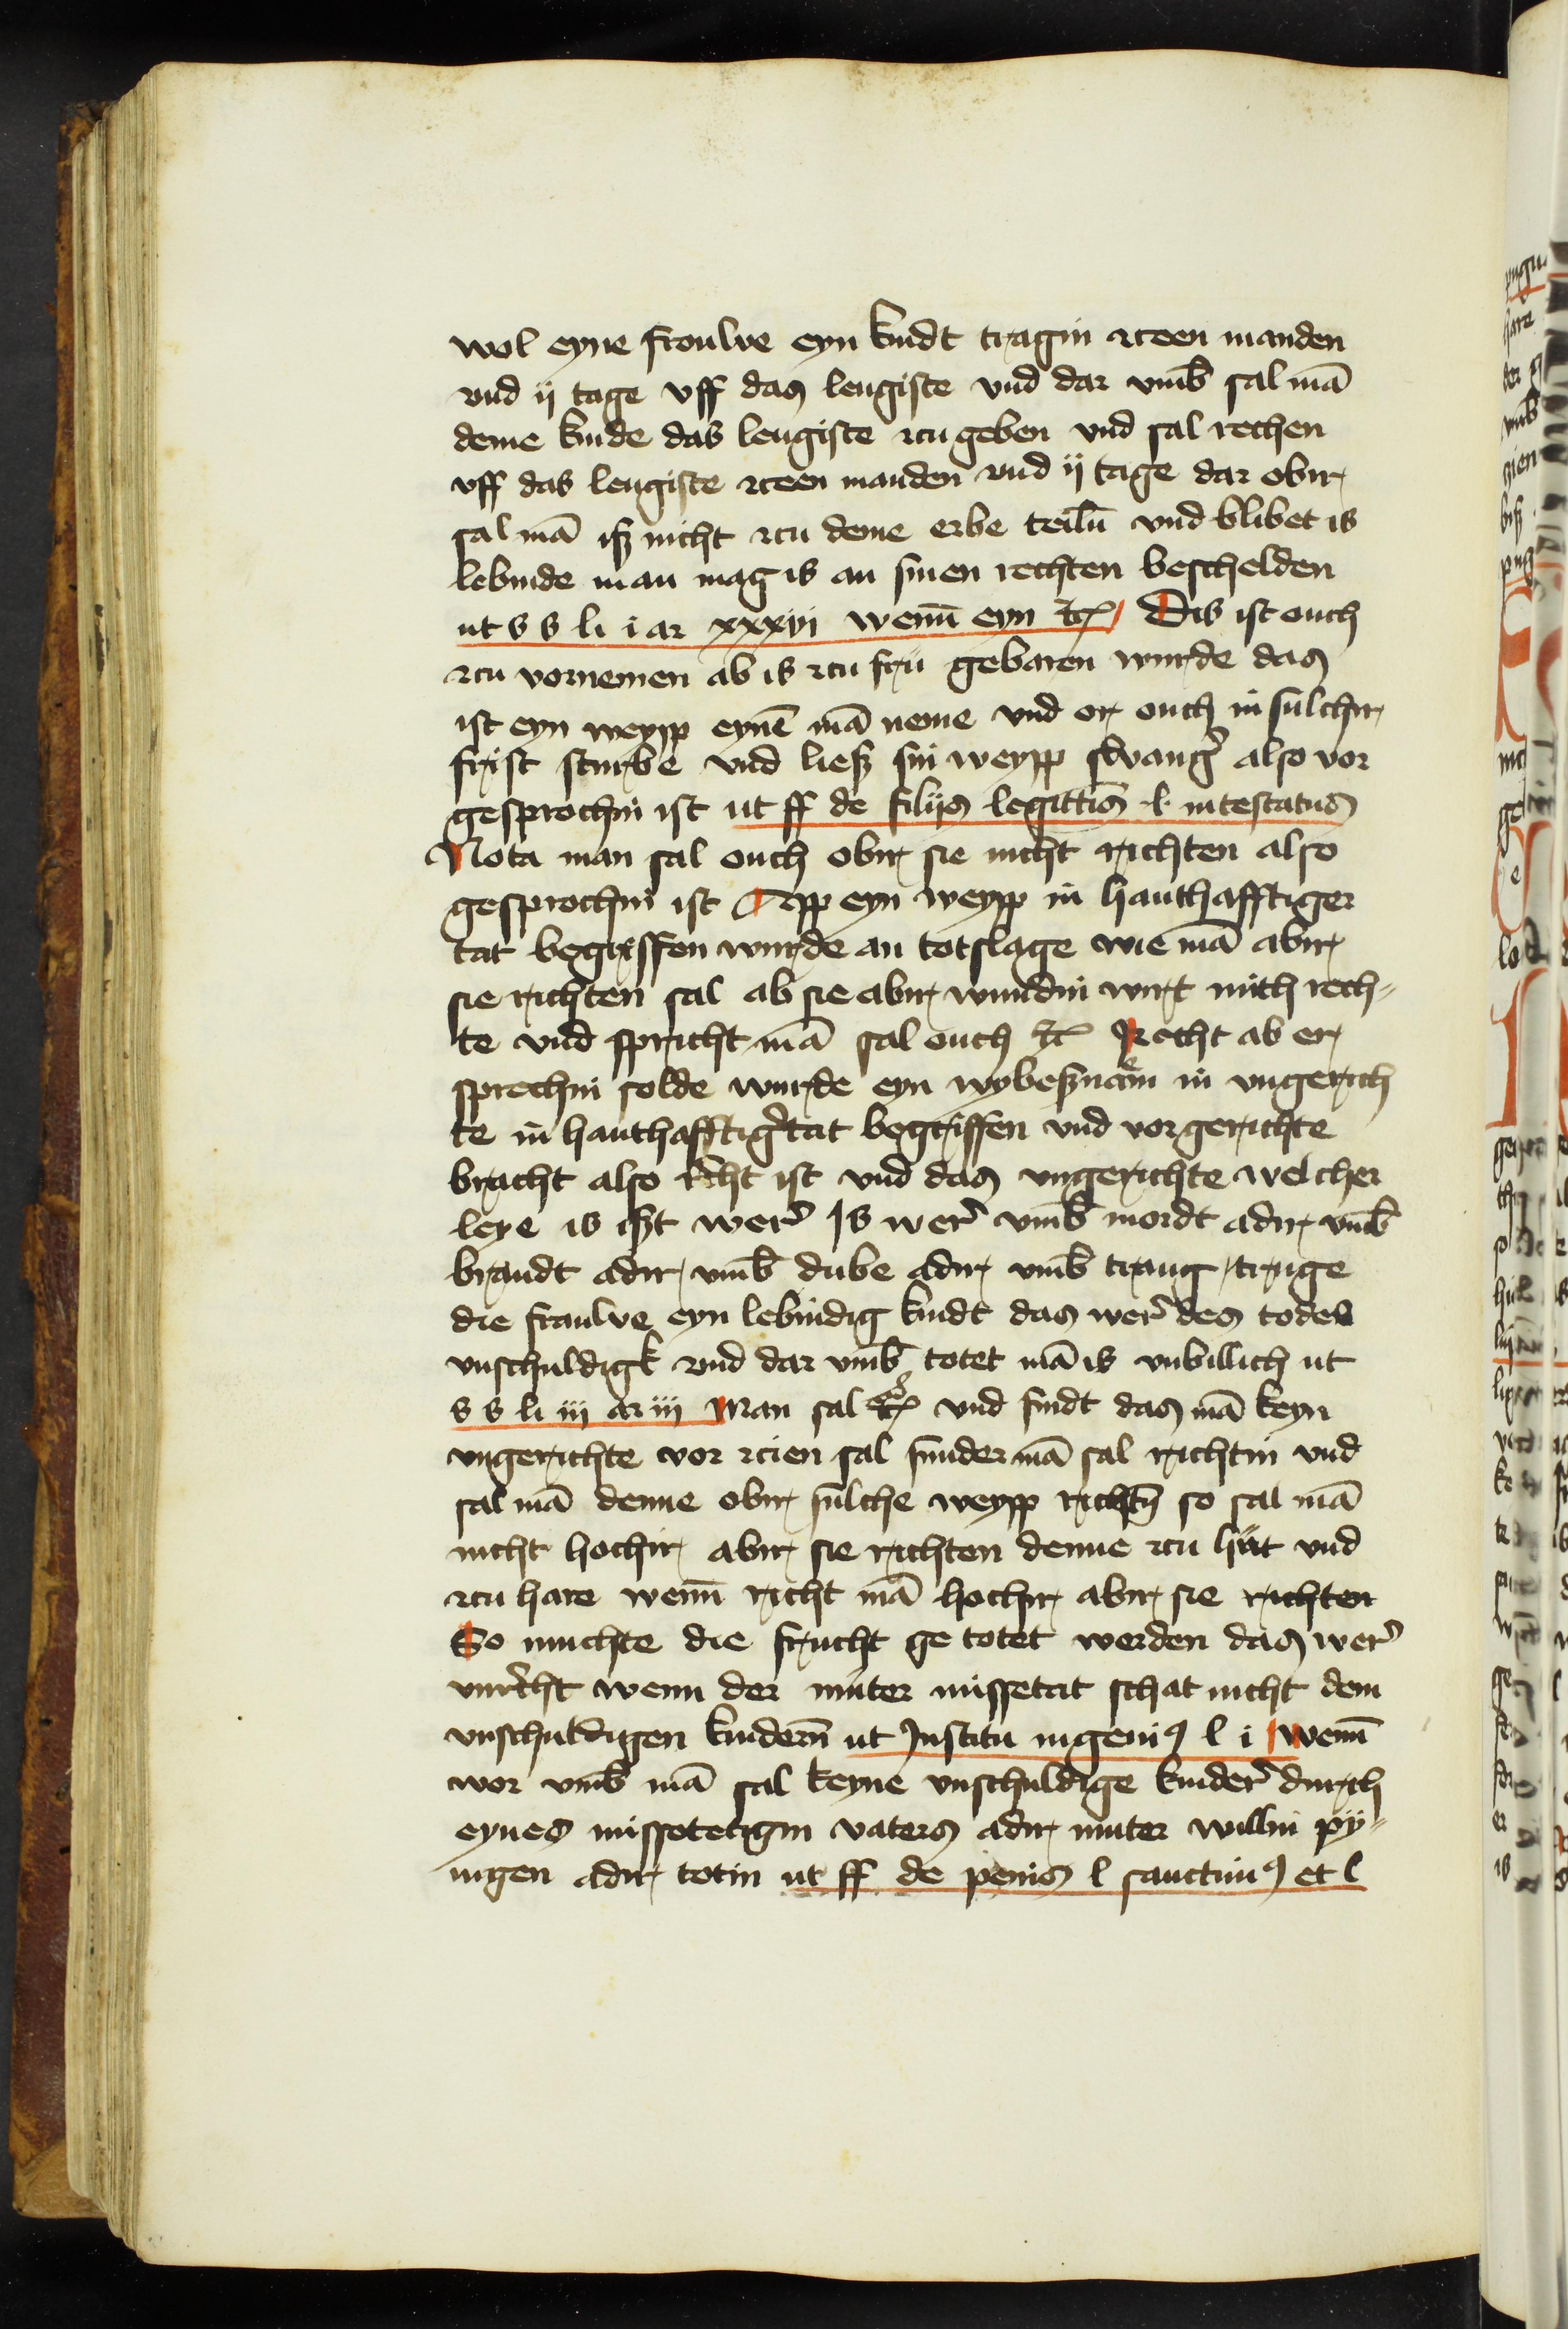 wol eyne frouwe eyn kindt tragin czeen manden
vnd ij tage vff das lengiste vnd dar vmb̄ sal mā
deme kinde das lengiste czu geben vnd sal rechen
vff das lengiste czeen manden vnd ij tage dar obir
sal mā isz nicht czu deme erbe teilū vnd blibet is
lebinde man mag is an sinen rechten beschelden
ut s s li i ar xxxvi wenn̄ eyn etc̄ Dis ist ouch
czu vornemen ab is czu fru gebaren wurde das
ist eyn weypp eynē mā neme vnd er ouch in sulchir
frist sturbe vnd liesz sin weypp swang̉ also vor
gesprochin ist ut ff de filijs legittīs l intestatus
Nota man sal ouch obir sie nicht richten also
gesprochin ist App eyn weypp in hanthafftiger
tat begriffen wurde an totslage wie mā abir
sie richten sal ab sie abir wundin wirt mith rech-
te vnd spricht mā sal ouch etc̄ Recht ab er
sprechin solde wurde eyn wybesznam̄ in vngerich
te in hanthafftig̉ tat begriffen vnd vor gerichte
bracht also r̉cht ist vnd das vngerichte welcher
leye is iszt wer̉ Is wer̉ vmb̄ mordt adir vmb̄
brandt adir vmb̄ dube adir vmb̄ traug truge
die frauwe eyn lebindig kindt das wer̉ des todes
vnschuldigk vnd dar vmb̄ totet mā is vnbillich ut
s s li iij ar iij Man sal etc̄ vnd findt das mā keyn
vngerichte vor czien sal sunder mā sal richtin vnd
sal mā denne obir sulche weypp richtn̄ so sal mā
nicht hochir abir sie richten denne czu hut vnd
czu hare wenn̄ richt mā hochir abir sie richten
So muchte die frucht ge totet werden das wer̉
vnr̉cht wenn der muter missetat schat nicht dem
vnschuldigen kindern̄ ut Institu ingeniꝰ l i wenn̄
wor vmb̄ mā sal keyne vnschuldige kinder̉ durch
eynes missetetigin vaters adir muter willin py-
nigen adir totin ut ff de penis l sanctimꝰ et l